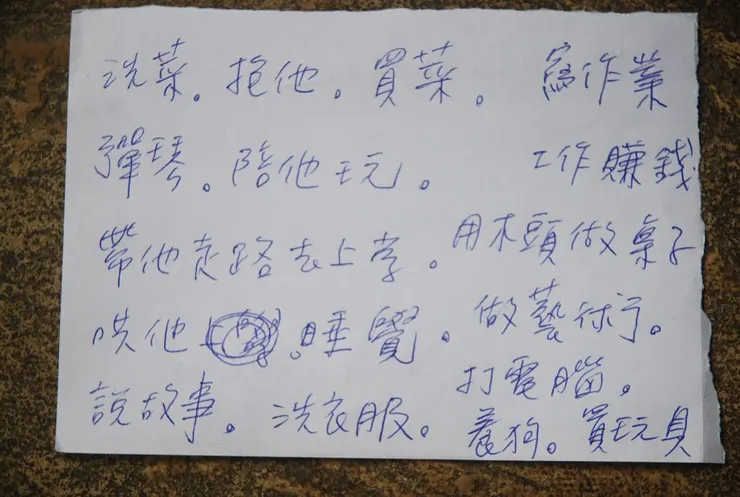 洗菜。抱他。買菜。 寫作業
彈琴。陪他玩。 工作賺錢
帶他走路去上学。用木頭做桌子
哄他睡覺。做藝術。
說故事。洗衣服。打電腦。
養狗。買玩具